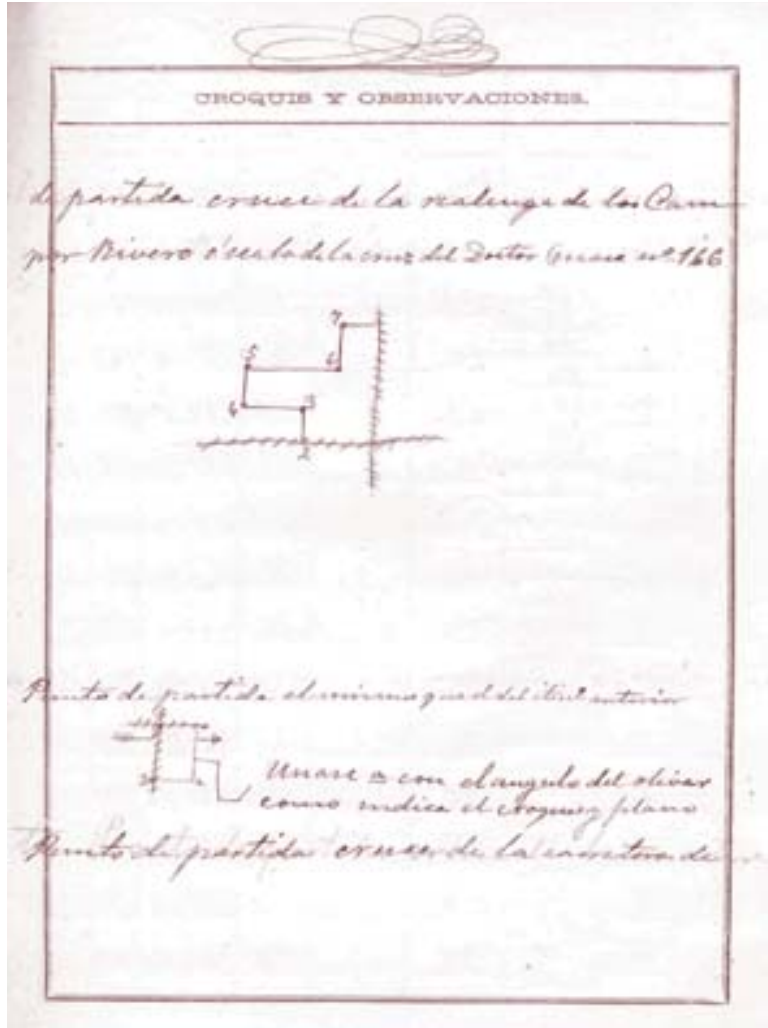 CROQUIS Y OBSERVACIONES.
de partida cruce de la realenga de los Cam
por Rivero ó sea la de la cruz del Doctor nº 166
7
5 6
4 3
2
Punto de partida el mismo que el del anterior
Unase con el angulo del olivar
como indica el croquis y plano
Punto de partida cruce de la carretera de